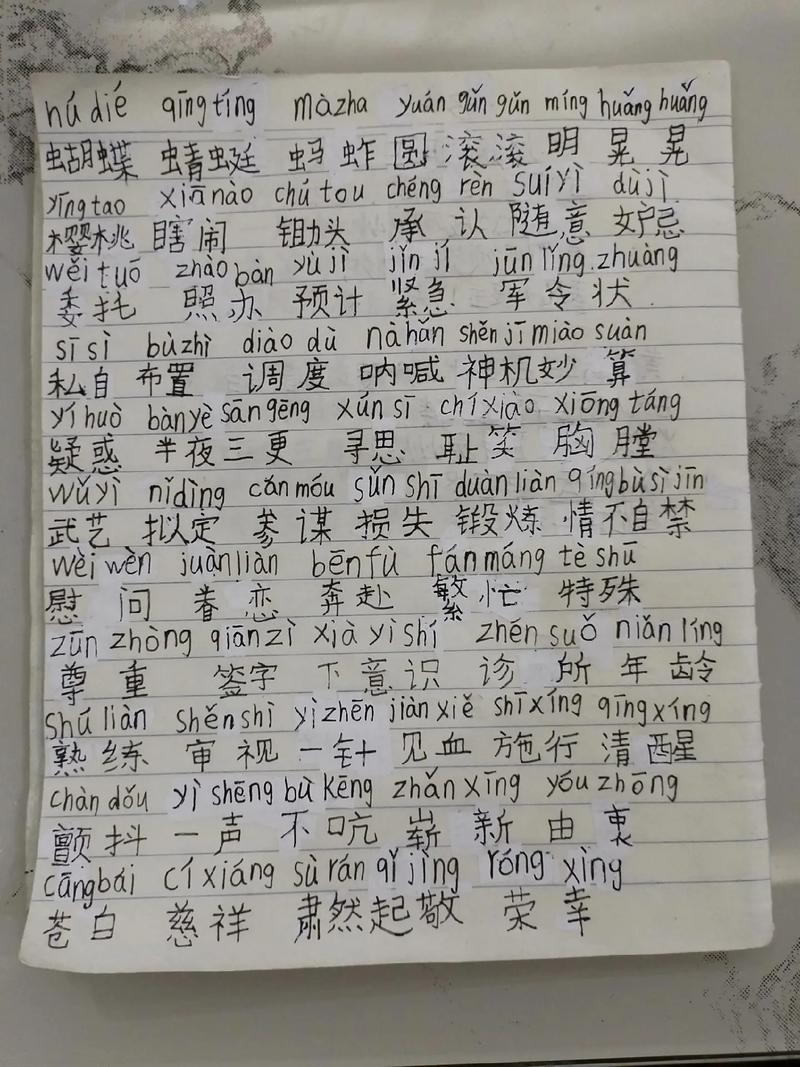 hú dié qīng tíng mà zha yuán gǔn gǔn míng huǎng huǎng
蝴蝶 蜻蜓 蚂蚱 圆滚滚 明晃晃
yīng tao xiā nào chú tou chéng rèn suí yì dù jì
樱桃 瞎闹 锄头 承认 随意 妒忌
wěi tuō zhào bàn yù jì jǐn jí jūn lǐng zhuàng
委托 照办 预计 紧急 军令状
sī sì bù zhì diào dù nà hǎn shén jī miào suàn
私自 布置 调度 呐喊 神机妙算
yí huò bàn yè sān gēng xún sī chí xiào xiōng táng
疑惑 半夜三更 寻思 耻笑 胸膛
wǔ yì nǐ dìng cān móu sǔn shī duàn liàn qíng bù sì jīn
武艺 拟定 参谋 损失 锻炼 情不自禁
wèi wèn juàn liàn bēn fù fán máng tè shū
慰问 眷恋 奔赴 繁忙 特殊
zūn zhòng qiān zì xià yì shí zhěn suǒ nián líng
尊重 签字 下意识 诊所 年龄
shú liàn shěn shì yì zhēn jiàn xiě shī xíng qīng xíng
熟练 审视 一针见血 施行 清醒
chàn dǒu yì shēng bù kēng zhǎn xīng yóu zhōng
颤抖 一声不吭 崭新 由衷
cāng bái cí xiáng sù rán qǐ jìng róng xìng
苍白 慈祥 肃然起敬 荣幸